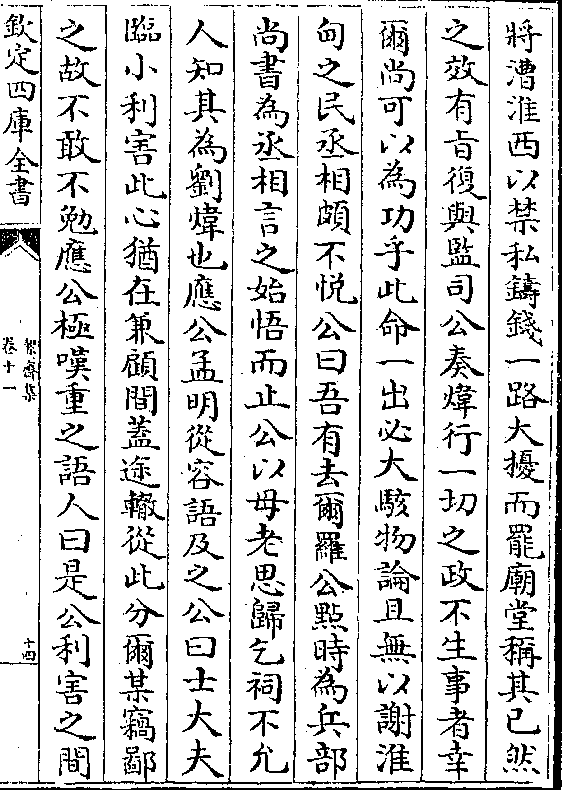 將漕淮西以禁私鑄錢一路大擾而罷廟堂稱其已然
之效有旨復與監司公奏煒行一切之政不生事者幸
爾尚可以為功乎此命一出必大駭物論且無以謝淮
甸之民丞相頗不悦公曰吾有去爾羅公點時為兵部
尚書為丞相言之始悟而止公以母老思歸乞祠不允
人知其為劉煒也應公孟明從容語及之公曰士大夫
臨小利害此心猶在兼顧間蓋途轍從此分爾某竊鄙
之故不敢不勉應公極嘆重之語人曰是公利害之間
欽定四庫全書
絜齋集
卷十一
十四